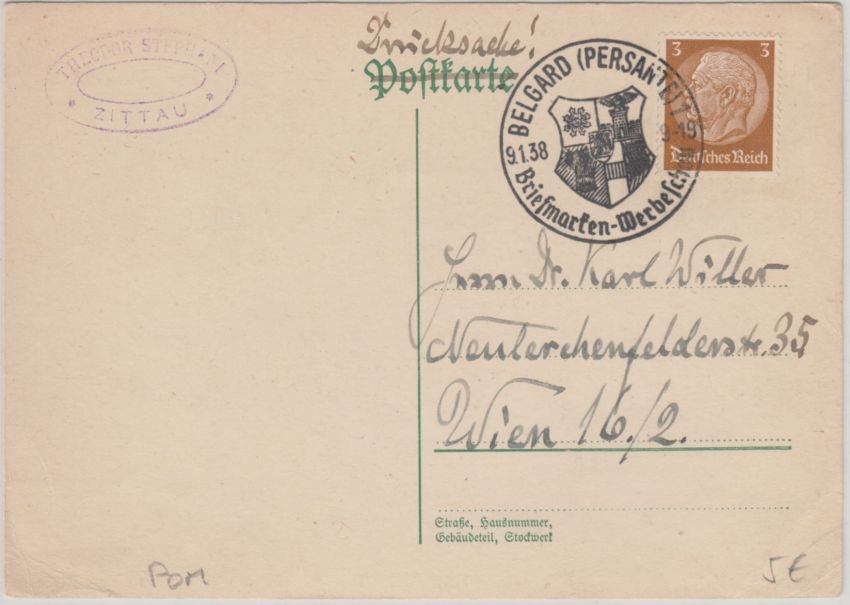 THEODOR STEPHANI
* ZITTAU *
Drucksache!
Postkarte
BELGARD (PERSANTE)
9.1.38
9-19
Briefmarken-Werbesch
3 3
Deutsches Reich
Herrn Dr. Karl Willer
Neulerchenfelderstr. 35
Wien 16./2.
Straße, Hausnummer,
Gebäudeteil, Stockwerk
Pom
5 €